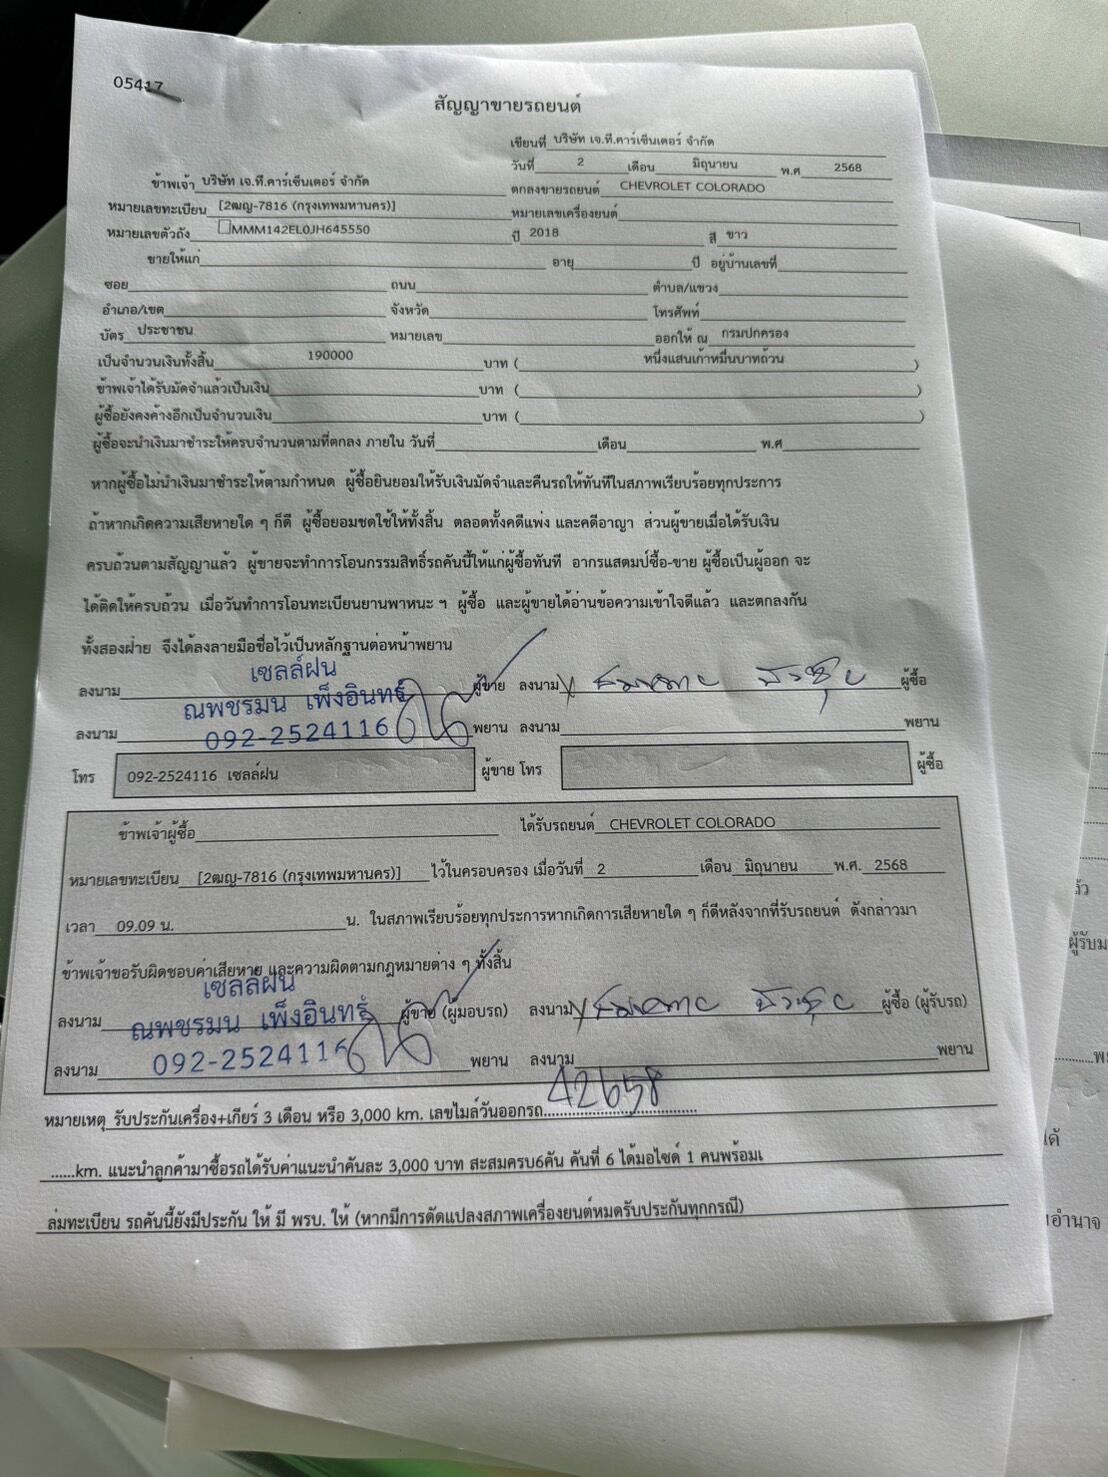 05417
สัญญาขายรถยนต์
เขียนที่ บริษัท เจ.ที.คาร์เซ็นเตอร์ จำกัด
วันที่ 2 เดือน มิถุนายน พ.ศ 2568
ข้าพเจ้า บริษัท เจ.ที.คาร์เซ็นเตอร์ จำกัด ตกลงขายรถยนต์ CHEVROLET COLORADO
หมายเลขทะเบียน [2ฒญ-7816 (กรุงเทพมหานคร)] หมายเลขเครื่องยนต์
หมายเลขตัวถัง MMM142EL0JH645550 ปี 2018 สี ขาว
ขายให้แก่ อายุ ปี อยู่บ้านเลขที่
ซอย ถนน ตำบล/แขวง
อำเภอ/เขต จังหวัด โทรศัพท์
บัตร ประชาชน หมายเลข ออกให้ ณ กรมปกครอง
เป็นจำนวนเงินทั้งสิ้น 190000 บาท ( หนึ่งแสนเก้าหมื่นบาทถ้วน )
ข้าพเจ้าได้รับมัดจำแล้วเป็นเงิน บาท ( )
ผู้ซื้อยังคงค้างอีกเป็นจำนวนเงิน บาท ( )
ผู้ซื้อจะนำเงินมาชำระให้ครบจำนวนตามที่ตกลง ภายใน วันที่ เดือน พ.ศ
หากผู้ซื้อไม่นำเงินมาชำระให้ตามกำหนด ผู้ซื้อยินยอมให้รับเงินมัดจำและคืนรถให้ทันทีในสภาพเรียบร้อยทุกประการ
ถ้าหากเกิดความเสียหายใด ๆ ก็ดี ผู้ซื้อยอมชดใช้ให้ทั้งสิ้น ตลอดทั้งคดีแพ่ง และคดีอาญา ส่วนผู้ขายเมื่อได้รับเงิน
ครบถ้วนตามสัญญาแล้ว ผู้ขายจะทำการโอนกรรมสิทธิ์รถคันนี้ให้แก่ผู้ซื้อทันที อากรแสตมป์ซื้อ-ขาย ผู้ซื้อเป็นผู้ออก จะ
ได้ติดให้ครบถ้วน เมื่อวันทำการโอนทะเบียนยานพาหนะ ฯ ผู้ซื้อ และผู้ขายได้อ่านข้อความเข้าใจดีแล้ว และตกลงกัน
ทั้งสองฝ่าย จึงได้ลงลายมือชื่อไว้เป็นหลักฐานต่อหน้าพยาน
เซลล์ฝน
ลงนาม ณพชรมน เพ็งอินทร์ ผู้ขาย ลงนาม ผู้ซื้อ
ลงนาม 092-2524116 พยาน ลงนาม พยาน
โทร 092-2524116 เซลล์ฝน ผู้ขาย โทร ผู้ซื้อ
ข้าพเจ้าผู้ซื้อ ได้รับรถยนต์ CHEVROLET COLORADO
หมายเลขทะเบียน [2ฒญ-7816 (กรุงเทพมหานคร)] ไว้ในครอบครอง เมื่อวันที่ 2 เดือน มิถุนายน พ.ศ. 2568
เวลา 09.09 น. น. ในสภาพเรียบร้อยทุกประการหากเกิดการเสียหายใด ๆ ก็ดีหลังจากที่รับรถยนต์ ดังกล่าวมา
ข้าพเจ้าขอรับผิดชอบค่าเสียหาย และความผิดตามกฎหมายต่าง ๆ ทั้งสิ้น
เซลล์ฝน
ลงนาม ณพชรมน เพ็งอินทร์ ผู้ขาย (ผู้มอบรถ) ลงนาม ผู้ซื้อ (ผู้รับรถ)
ลงนาม 092-2524116 พยาน ลงนาม พยาน
หมายเหตุ รับประกันเครื่อง+เกียร์ 3 เดือน หรือ 3,000 km. เลขไมล์วันออกรถ 42658
......km. แนะนำลูกค้ามาซื้อรถได้รับค่าแนะนำคันละ 3,000 บาท สะสมครบ6คัน คันที่ 6 ได้มอไซด์ 1 คนพร้อมเ
ล่มทะเบียน รถคันนี้ยังมีประกัน ให้ มี พรบ. ให้ (หากมีการดัดแปลงสภาพเครื่องยนต์หมดรับประกันทุกกรณี)